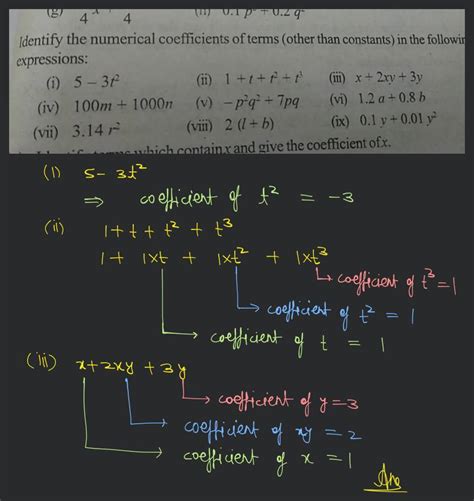 (g) 4 4 (ii) 0.1 p² + 0.2 q²
Identify the numerical coefficients of terms (other than constants) in the
expressions:
(i) 5 – 3t² (ii) 1 + t + t² + t³ (iii) x + 2xy + 3y
(iv) 100m + 1000n (v) – p²q² + 7pq (vi) 1.2 a + 0.8 b
(vii) 3.14 r² (viii) 2 (l + b) (ix) 0.1 y + 0.01 y²
terms which contain x and give the coefficient of x.
(1) 5 - 3t²
⇒ coefficient of t² = -3
(ii) 1 + t + t² + t³
1 + 1×t + 1×t² + 1×t³
coefficient of t³ = 1
coefficient of t² = 1
coefficient of t = 1
(iii) x + 2xy + 3y
coefficient of y = 3
coefficient of xy = 2
coefficient of x = 1
Ans